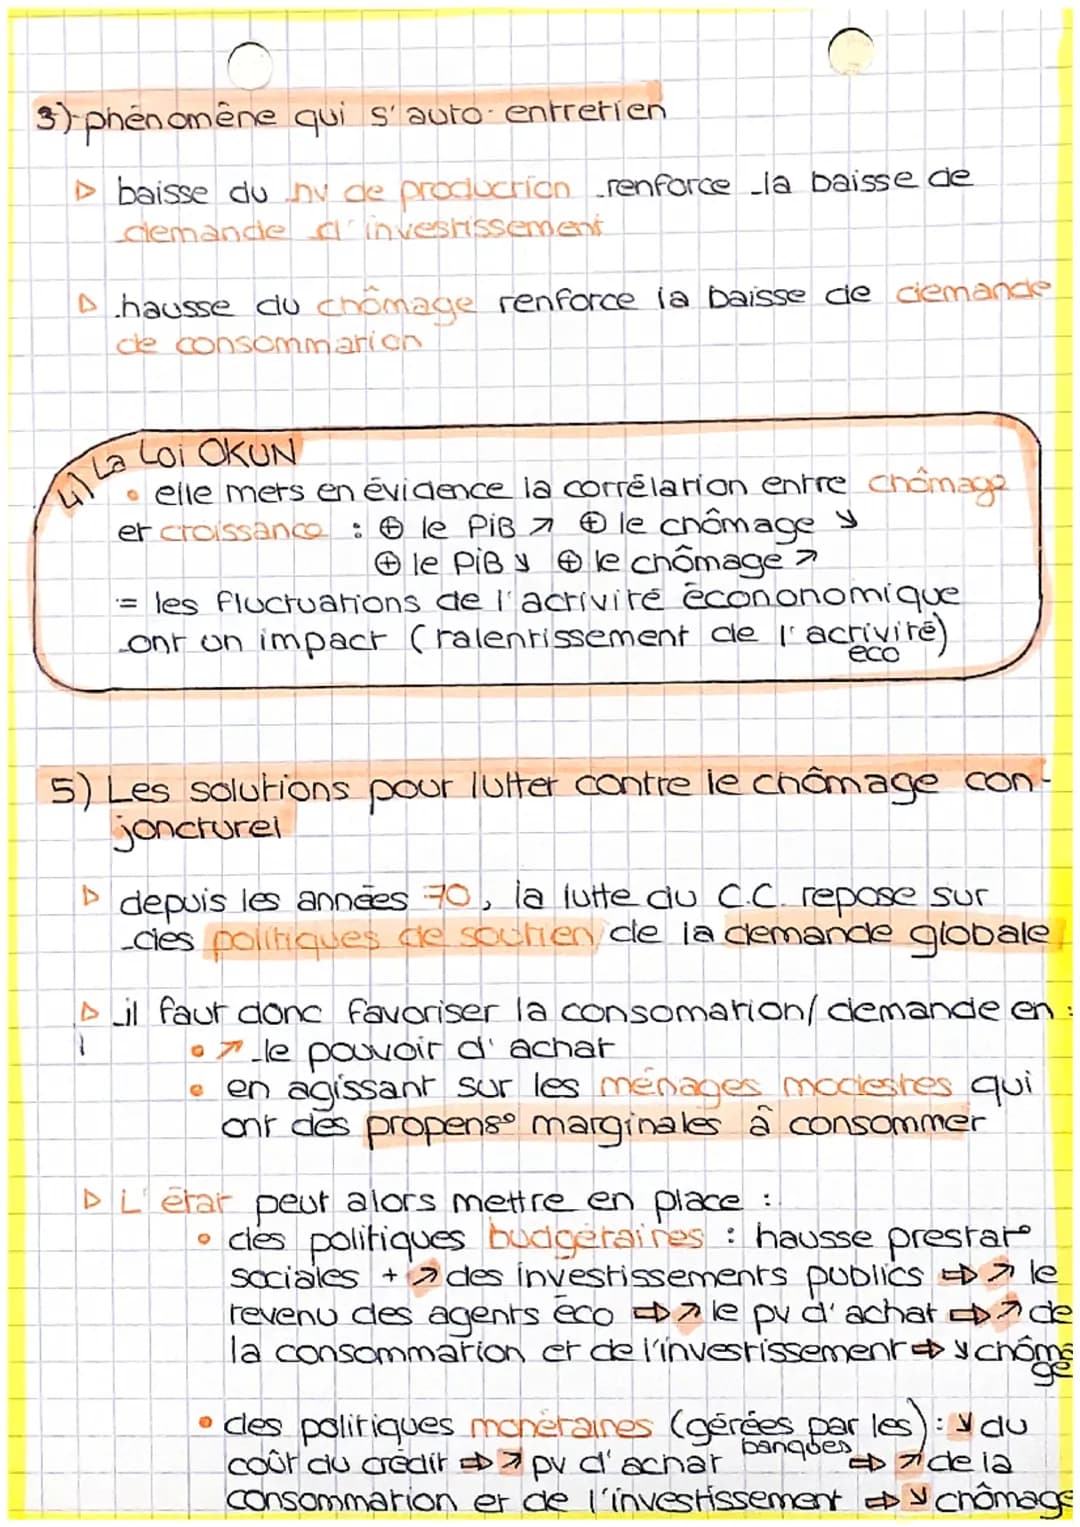 3) phénomène qui s'auto-entretien
▷ baisse du nv de production renforce la baisse de
demande d'investissement
▷ hausse du chômage renforce la baisse de demande
de consommation
4) La Loi OKUN
• elle mets en évidence la corrélation entre chômage
et croissance : ⊕ le PiB ↗ ⊕ le chômage ↘
⊕ le PiB ↘ ⊕ le chômage ↗
= les fluctuations de l'activité écononomique
ont un impact (ralentissement de l'activité)
eco
5) Les solutions pour lutter contre le chômage con-
joncturel
▷ depuis les années 70, la lutte du C.C. repose sur
des politiques de soutien de la demande globale
▷ il faut donc favoriser la consomation/demande en :
• ↗ le pouvoir d'achat
• en agissant sur les ménages modestes qui
ont des propens° marginales à consommer
▷ L'état peut alors mettre en place :
• des politiques budgétaires : hausse prestat°
sociales + ↗ des investissements publics ⇒ ↗ le
revenu des agents éco ⇒ ↗ le pv d'achat ⇒ ↗ de
la consommation et de l'investissement ⇒ ↘ chôma
ge
• des politiques monétaires (gérées par les) : ↘ du
banques
coût du crédit ⇒ ↗ pv d'achat ⇒ ↗ de la
consommation et de l'investissement ⇒ ↘ chômage